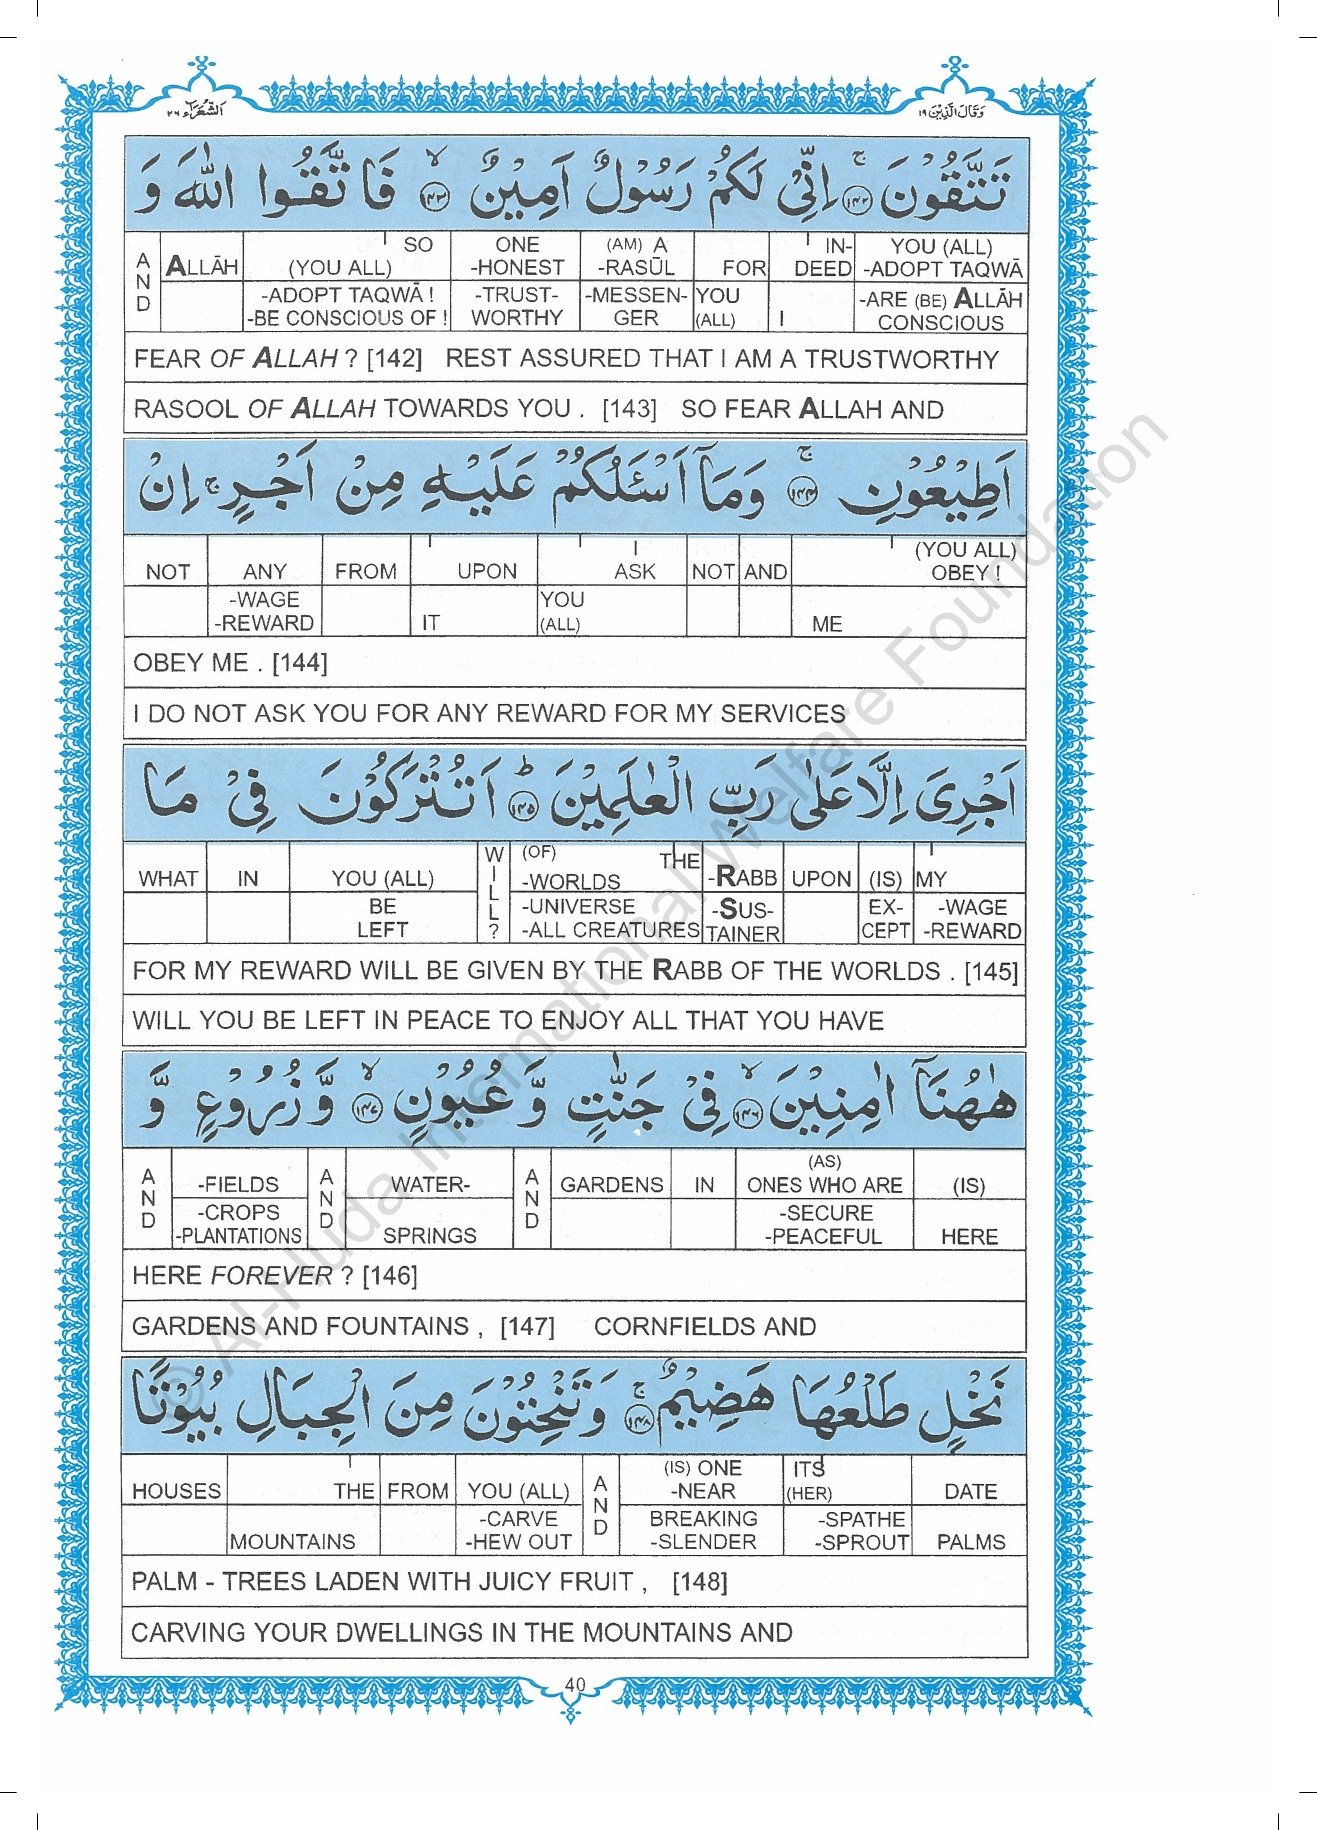 اَلشُّعَرَآء ٢٦
وَقَالَ الَّذِيْنَ ١٩
تَتَّقُوْنَ ۚ ﴿١٤٢﴾ اِنِّىْ لَكُمْ رَسُوْلٌ اَمِيْنٌ ۙ ﴿١٤٣﴾ فَاتَّقُوا اللّٰهَ وَ
AND ALLĀH SO ONE (AM) A IN- YOU (ALL)
(YOU ALL) -HONEST -RASŪL FOR DEED -ADOPT TAQWĀ
-ADOPT TAQWĀ ! -TRUST- -MESSEN- YOU -ARE (BE) ALLĀH
-BE CONSCIOUS OF ! WORTHY GER (ALL) I CONSCIOUS
FEAR OF ALLAH ? [142] REST ASSURED THAT I AM A TRUSTWORTHY
RASOOL OF ALLAH TOWARDS YOU . [143] SO FEAR ALLAH AND
اَطِيْعُوْنِ ۚ ﴿١٤٤﴾ وَمَآ اَسْـَٔلُكُمْ عَلَيْهِ مِنْ اَجْرٍ ۚ اِنْ
I I (YOU ALL)
NOT ANY FROM UPON ASK NOT AND OBEY !
-WAGE YOU
-REWARD IT (ALL) ME
OBEY ME . [144]
I DO NOT ASK YOU FOR ANY REWARD FOR MY SERVICES
اَجْرِىَ اِلَّا عَلٰى رَبِّ الْعٰلَمِيْنَ ؕ ﴿١٤٥﴾ اَتُتْرَكُوْنَ فِىْ مَا
WILL? (OF) THE
WHAT IN YOU (ALL) -WORLDS -RABB UPON (IS) MY
BE -UNIVERSE -SUS- EX- -WAGE
LEFT -ALL CREATURES TAINER CEPT -REWARD
FOR MY REWARD WILL BE GIVEN BY THE RABB OF THE WORLDS . [145]
WILL YOU BE LEFT IN PEACE TO ENJOY ALL THAT YOU HAVE
هٰهُنَآ اٰمِنِيْنَ ۙ ﴿١٤٦﴾ فِىْ جَنّٰتٍ وَّعُيُوْنٍ ۙ ﴿١٤٧﴾ وَّزُرُوْعٍ وَّ
(AS)
AND -FIELDS AND WATER- AND GARDENS IN ONES WHO ARE (IS)
-CROPS -SECURE
-PLANTATIONS SPRINGS -PEACEFUL HERE
HERE FOREVER ? [146]
GARDENS AND FOUNTAINS , [147] CORNFIELDS AND
نَخْلٍ طَلْعُهَا هَضِيْمٌ ۚ ﴿١٤٨﴾ وَتَنْحِتُوْنَ مِنَ الْجِبَالِ بُيُوْتًا
AND (IS) ONE ITS
HOUSES THE FROM YOU (ALL) -NEAR (HER) DATE
-CARVE BREAKING -SPATHE
MOUNTAINS -HEW OUT -SLENDER -SPROUT PALMS
PALM - TREES LADEN WITH JUICY FRUIT , [148]
CARVING YOUR DWELLINGS IN THE MOUNTAINS AND
40
© Al-Huda International Welfare Foundation